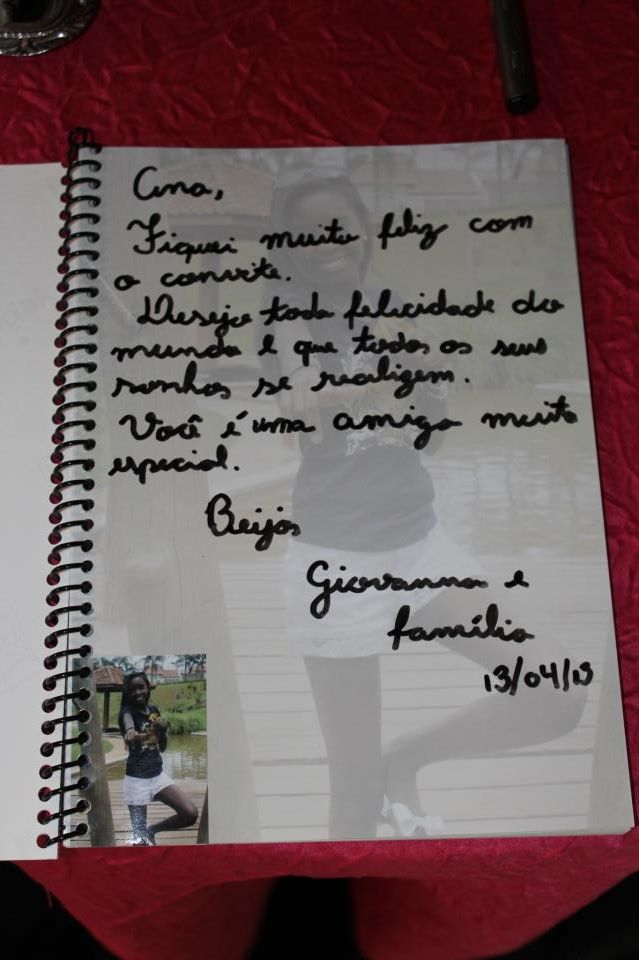 Ana,
Fiquei muito feliz com
o convite.
Desejo toda felicidade do
mundo e que todos os seus
sonhos se realizem.
Você é uma amiga muito
especial.
Beijos
Giovanna e
família
13/04/13